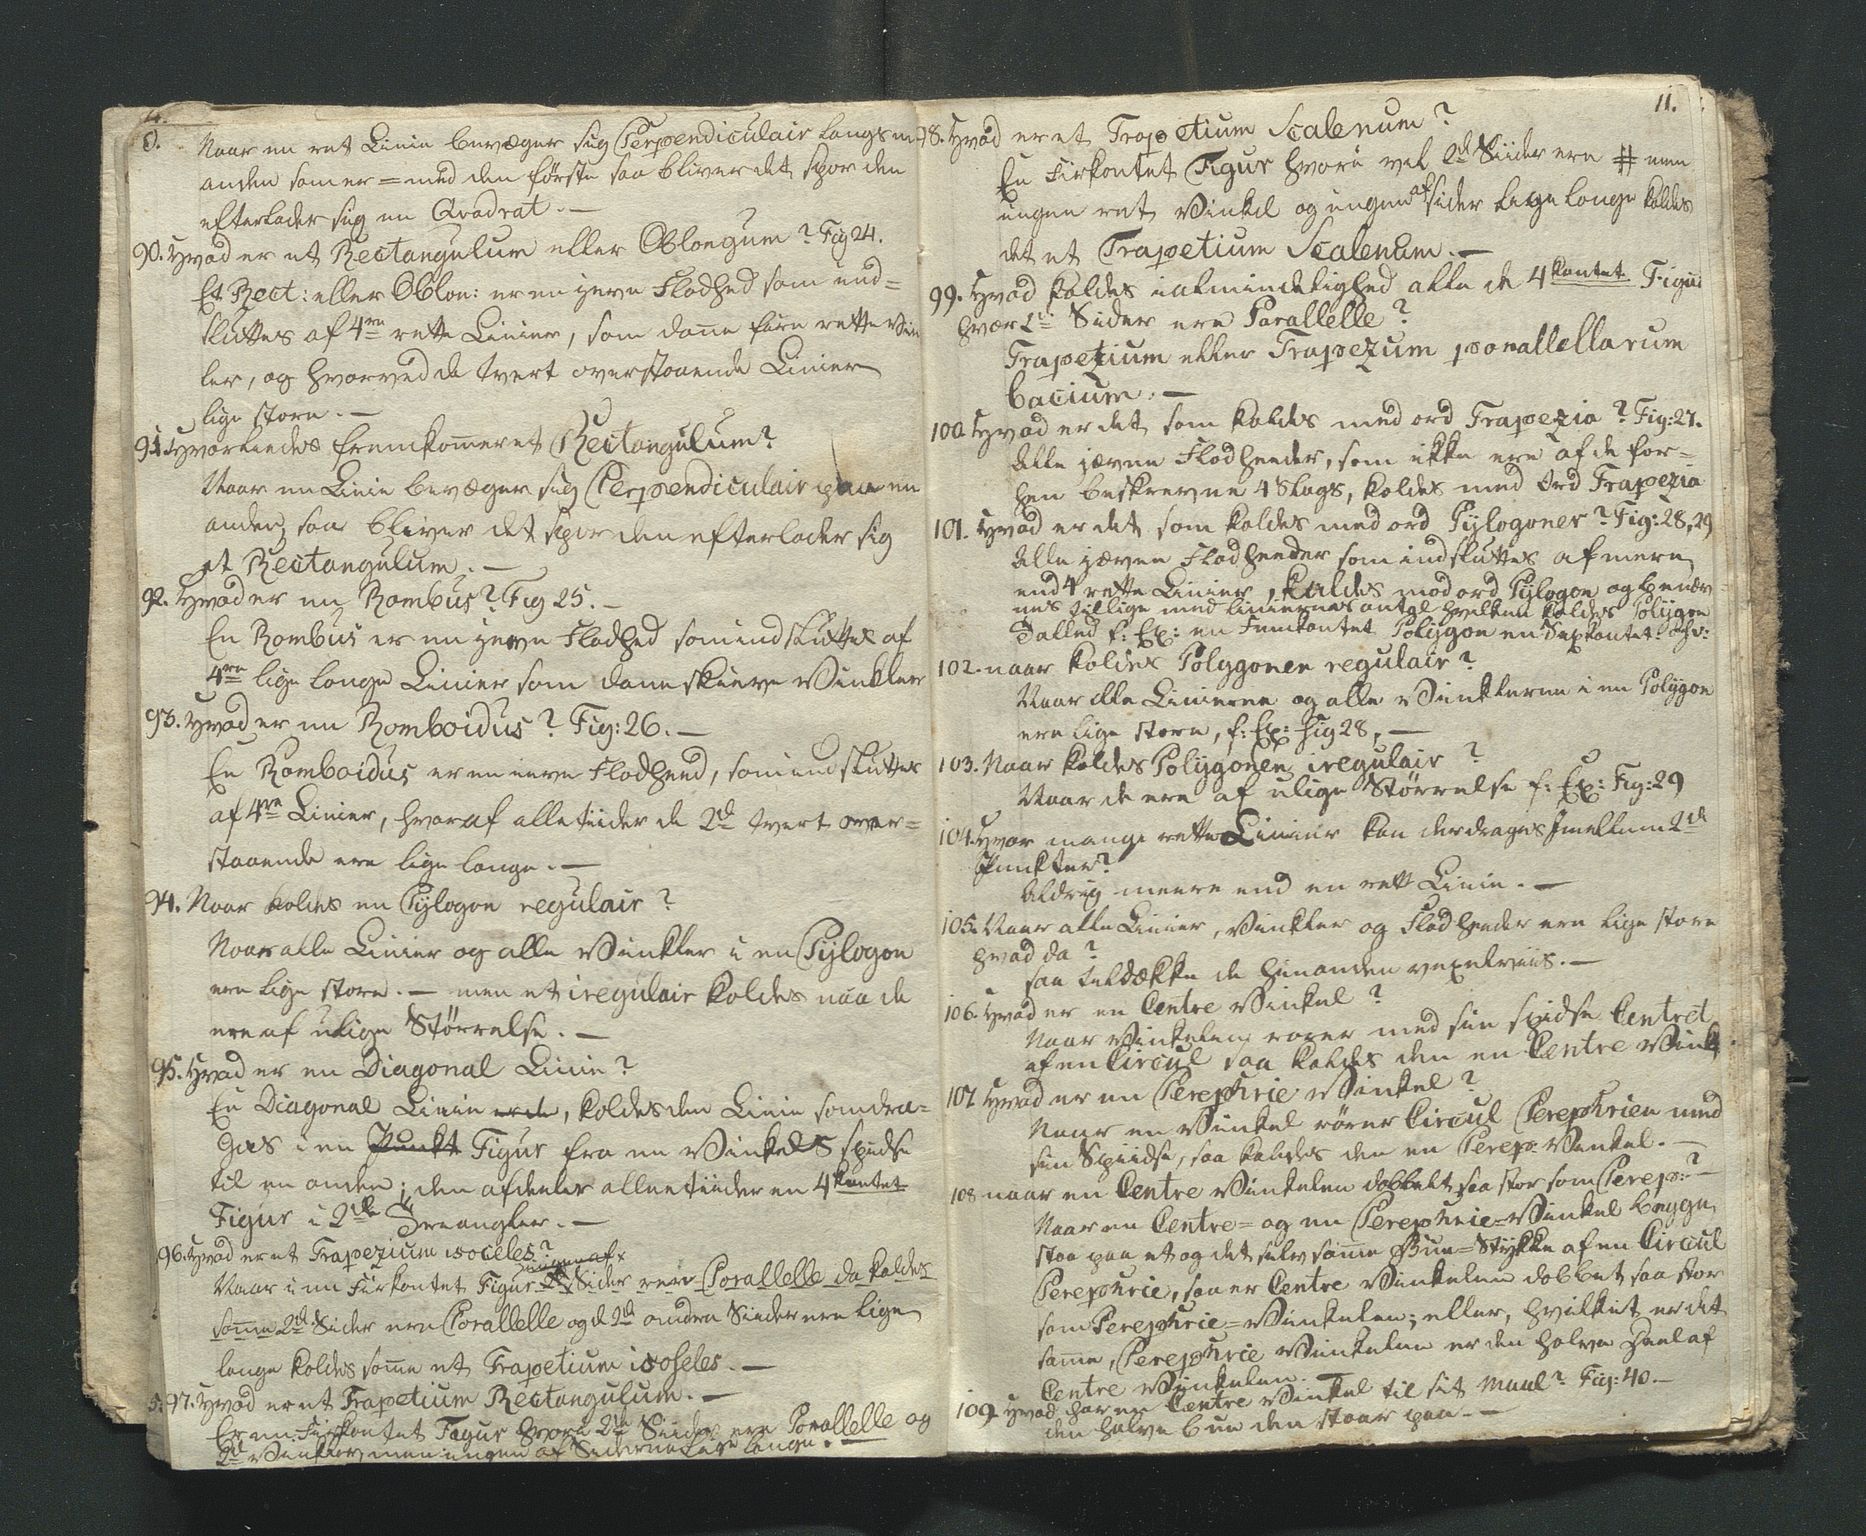 Naar en ret Linie bevæger sig Perpendiculair langs med
anden som er = med den første saa bliver det spor den
efterlader sig en Qvadrat. —
90. Hvad er et Rectangulum eller Oblongum? Fig 24.
Et Rect: eller Oblon: er en jevn Fladhed som ind=
sluttes af 4re rette Linier, som dane fiire rette Vin
ler, og hvorved de tvert overstaaende Linier
lige store. —
91. Hvorledes fremkommer et Rectangulum?
Naar en Linie bevæger sig Perpendiculair paa en
anden, saa bliver det spor den efterlader sig
et Rectangulum. —
92. Hvad er en Rombus? Fig 25. —
En Rombus er en jevn Fladhed som indsluttes af
4re lige lange Linier som dane skieve Vinkler
93. Hvad er en Romboidus? Fig: 26. —
En Romboidus er en jevn Fladheed, som indsluttes
af 4re Linier, hvoraf alletiider de 2de tvert over=
staaende ere lige lange. —
94. Naar kaldes en Pylogon regulair?
Naar alle Linier og alle Vinkler i en Pylogon
ere lige store. — men et iregulair kaldes naar de
ere af ulige Størrelse. —
95. Hvad er en Diagonal Linie?
En Diagonal Linie er de, kaldes den Linie som dra=
ges i en Punkt Figur fra en Vinkels spidse
til en anden; den afdeeler alletiider en 4kantet
Figur i 2de Treangler. —
96. Hvad er et Trapezium isoceles?
ingen af
Naar i en Firkantet Figur Sider ere Parallelle da kaldes
samme 2de Sider ere Parallelle og de 2de andre Siider ere lige
lange kaldes samme et Trapetium isoseles. —
97. Hvad er et Trapetium Rectangulum. —
Er en Firkantet Figur hvori 2de Siider ere Parallelle og
2de Vinkler men ingen af Siderne lige lange. —
11.
98. Hvad er et Trapetium Scalenum?
En Firkantet Figur hvori vel 2de Siider ere # men
ingen ret Vinkel og ingen af sider lige lange kaldes
det et Trapetium Scalenum. —
99. Hvad kaldes i almindelighed alle de 4kantet Figur
hvor 2de Sider ere Parallelle?
Trapezium eller Trapezum parallellarum
bacium. —
100. Hvad er det som kaldes med ord Trapezia? Fig: 27.
Alle jævne Fladheeder, som ikke ere af de for=
hen beskrevne 4 Slags, kaldes med Ord Trapezia
101. Hvad er det som kaldes med ord Pylogoner? Fig: 28, 29
Alle jævne Fladheeder som indsluttes af mere
end 4 rette Linier, kaldes med ord Pylogon og benæv
nes tillige med Liniernes antal hvilken kaldes Polygon
Tallet f: Ex: en Femkantet Polygon en Sexkantet
102. naar kaldes Polygonen regulair?
Naar alle Linierne og alle Vinklerne i en Polygon
ere lige store, f: Ex: Fig 28, —
103. Naar kaldes Polygonen iregulair?
Naar de ere af ulige Størrelse f: Ex: Fig: 29
104. Hvor mange rette Linier kan der drages Imellem 2de
Punkter?
Aldrig meere end en rett Linie. —
105. Naar alle Linier, Vinkler og Fladheeder ere lige store
hvad da?
saa tildække de hinanden vexelviis. —
106. Hvad er en Centre Vinkel?
Naar Vinkelen rører med sin spidse Centret
af en Circul saa kaldes den en Centre Vink
107. Hvad er en Perephrie Vinkel?
Naar en Vinkel rører Circul Perephrien med
sin Spiidse, saa kaldes den en Perep: Vinkel. —
108. naar en Centre Vinkelen dobbelt saa stor som Perep:? —
Naar en Centre= og en Perephrie=Vinkel begge
staa paa et og det selv samme Bue=Stykke af en Circul
Perephrie, saa er Centre Vinkelen dobbet saa stor
som Perephrie=Vinkelen; eller, hvilket er det
samme, Perephrie Vinkelen er den halve Deel af
Centre Vinkelen. —
109. Hvad har en Centre Vinkel til sit Maal? Fig: 40. —
den halve bue den staar paa. —